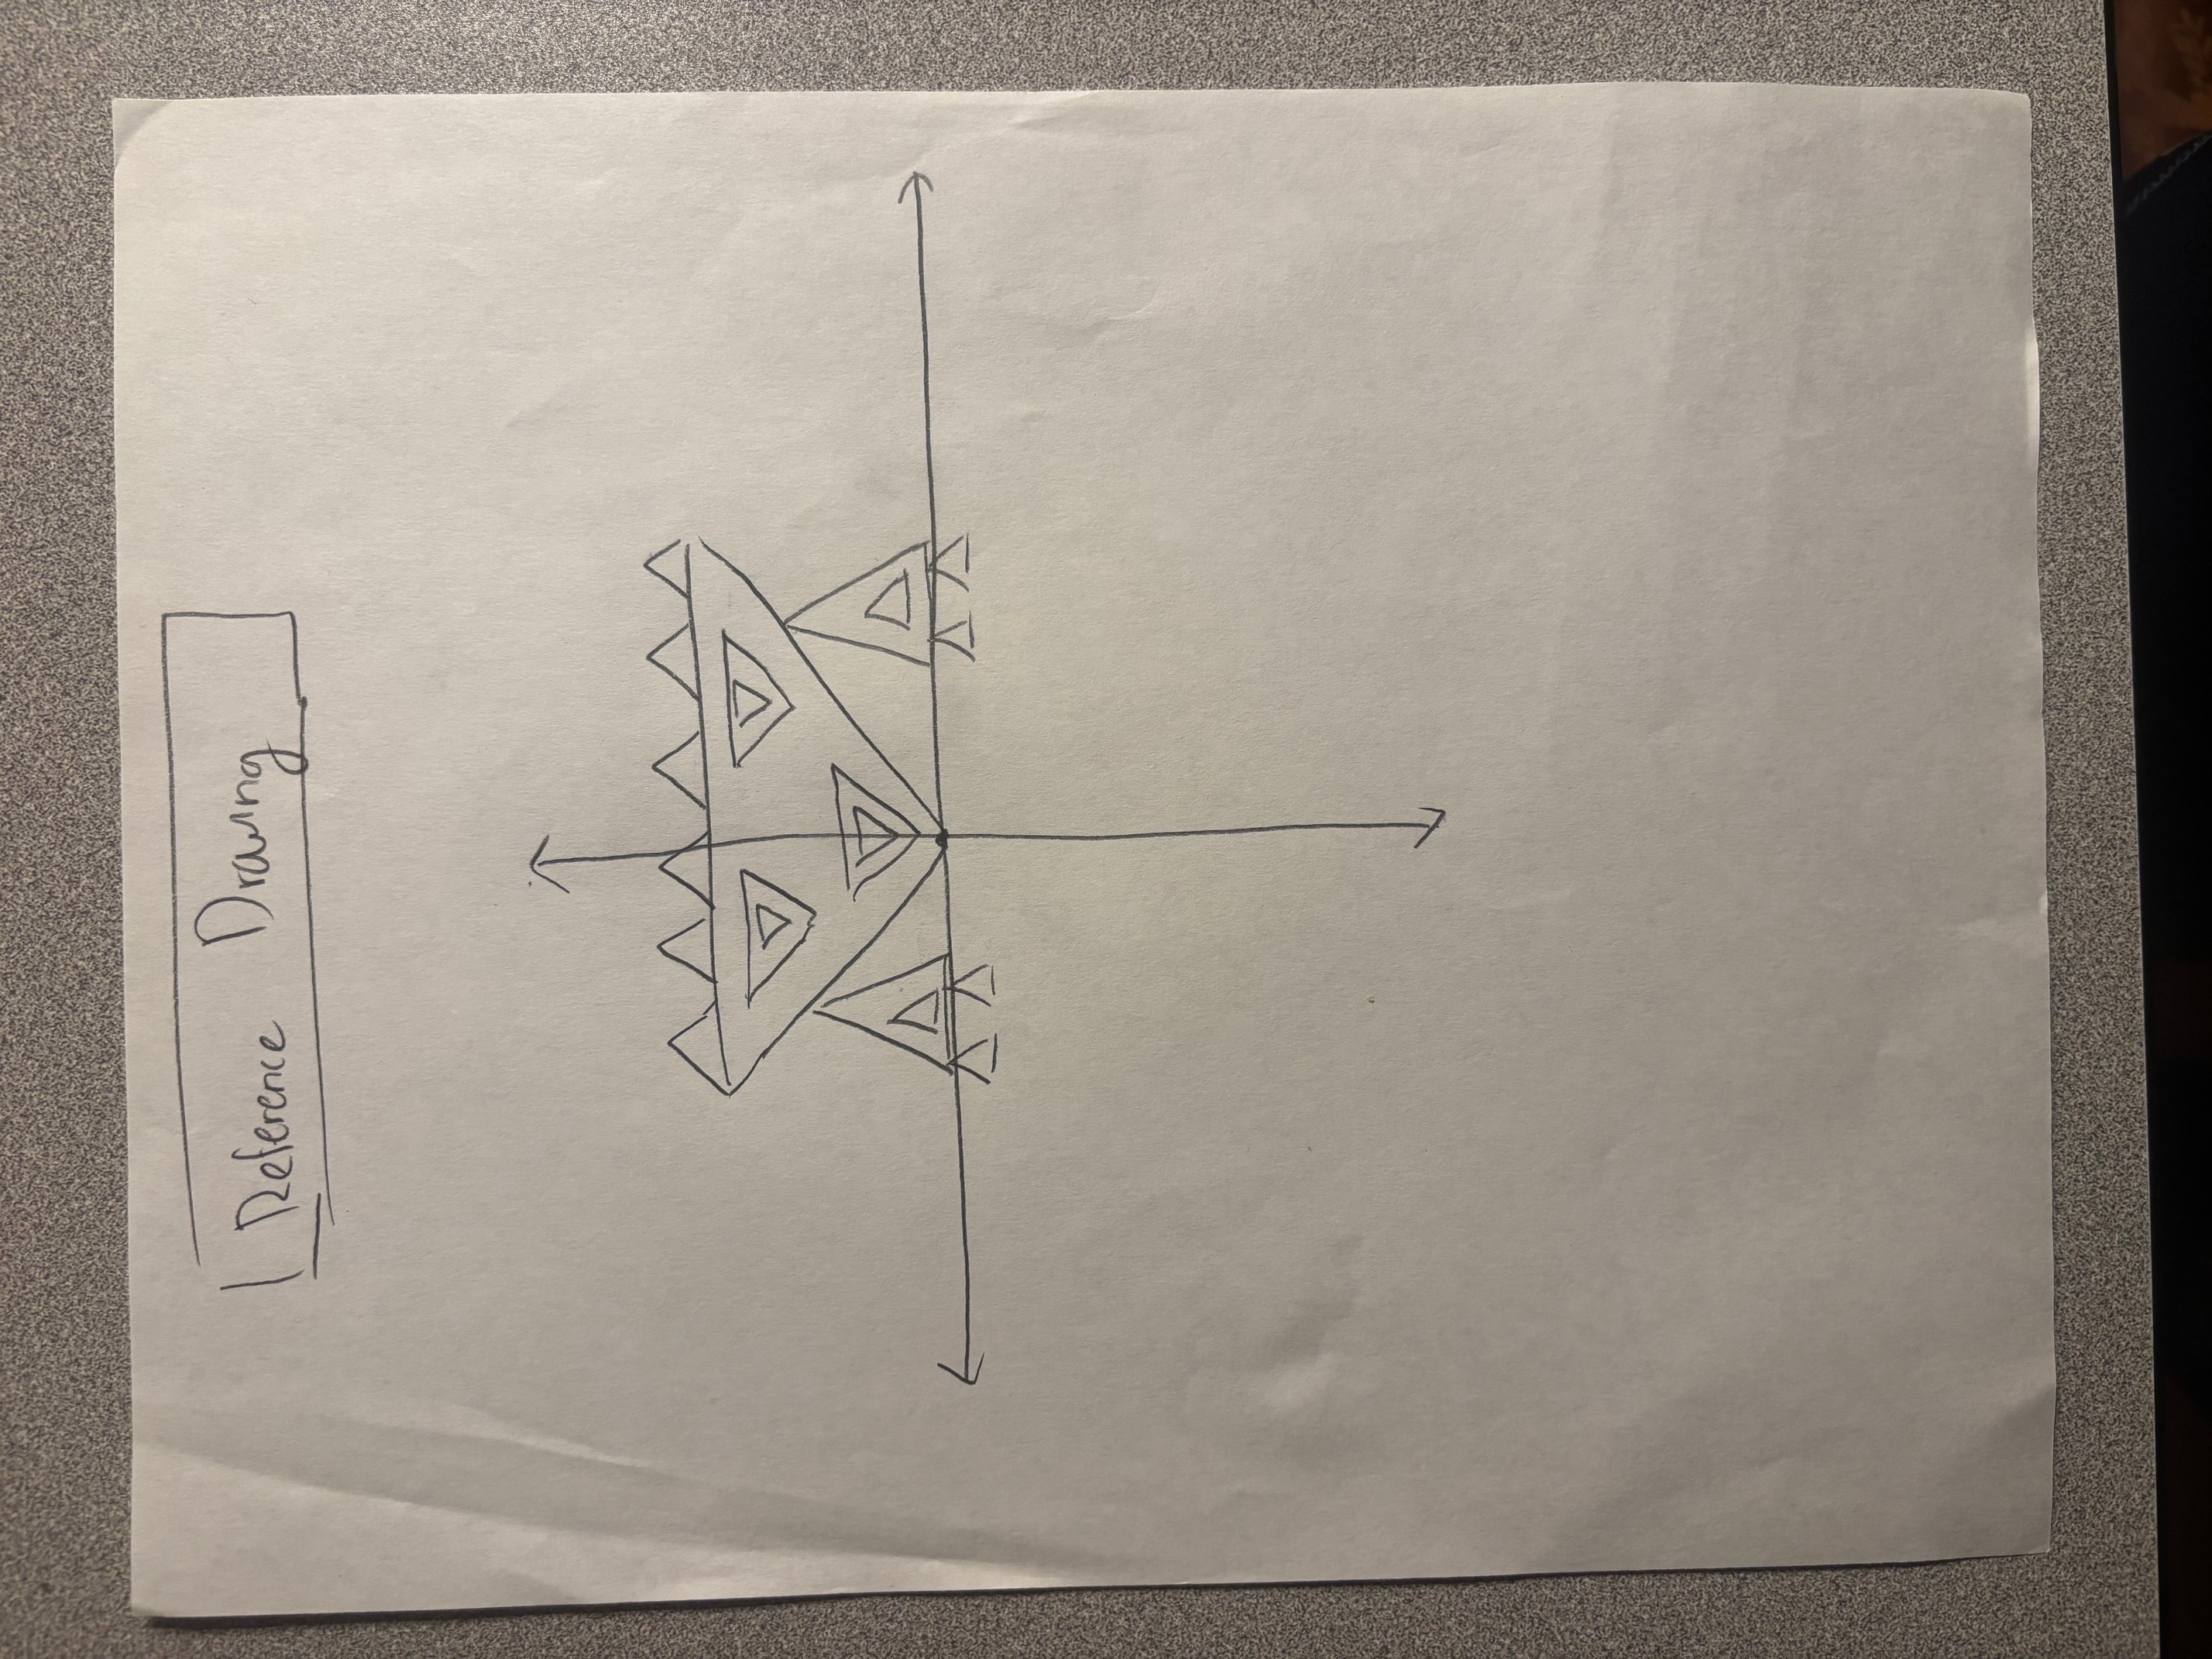 Reference Drawing